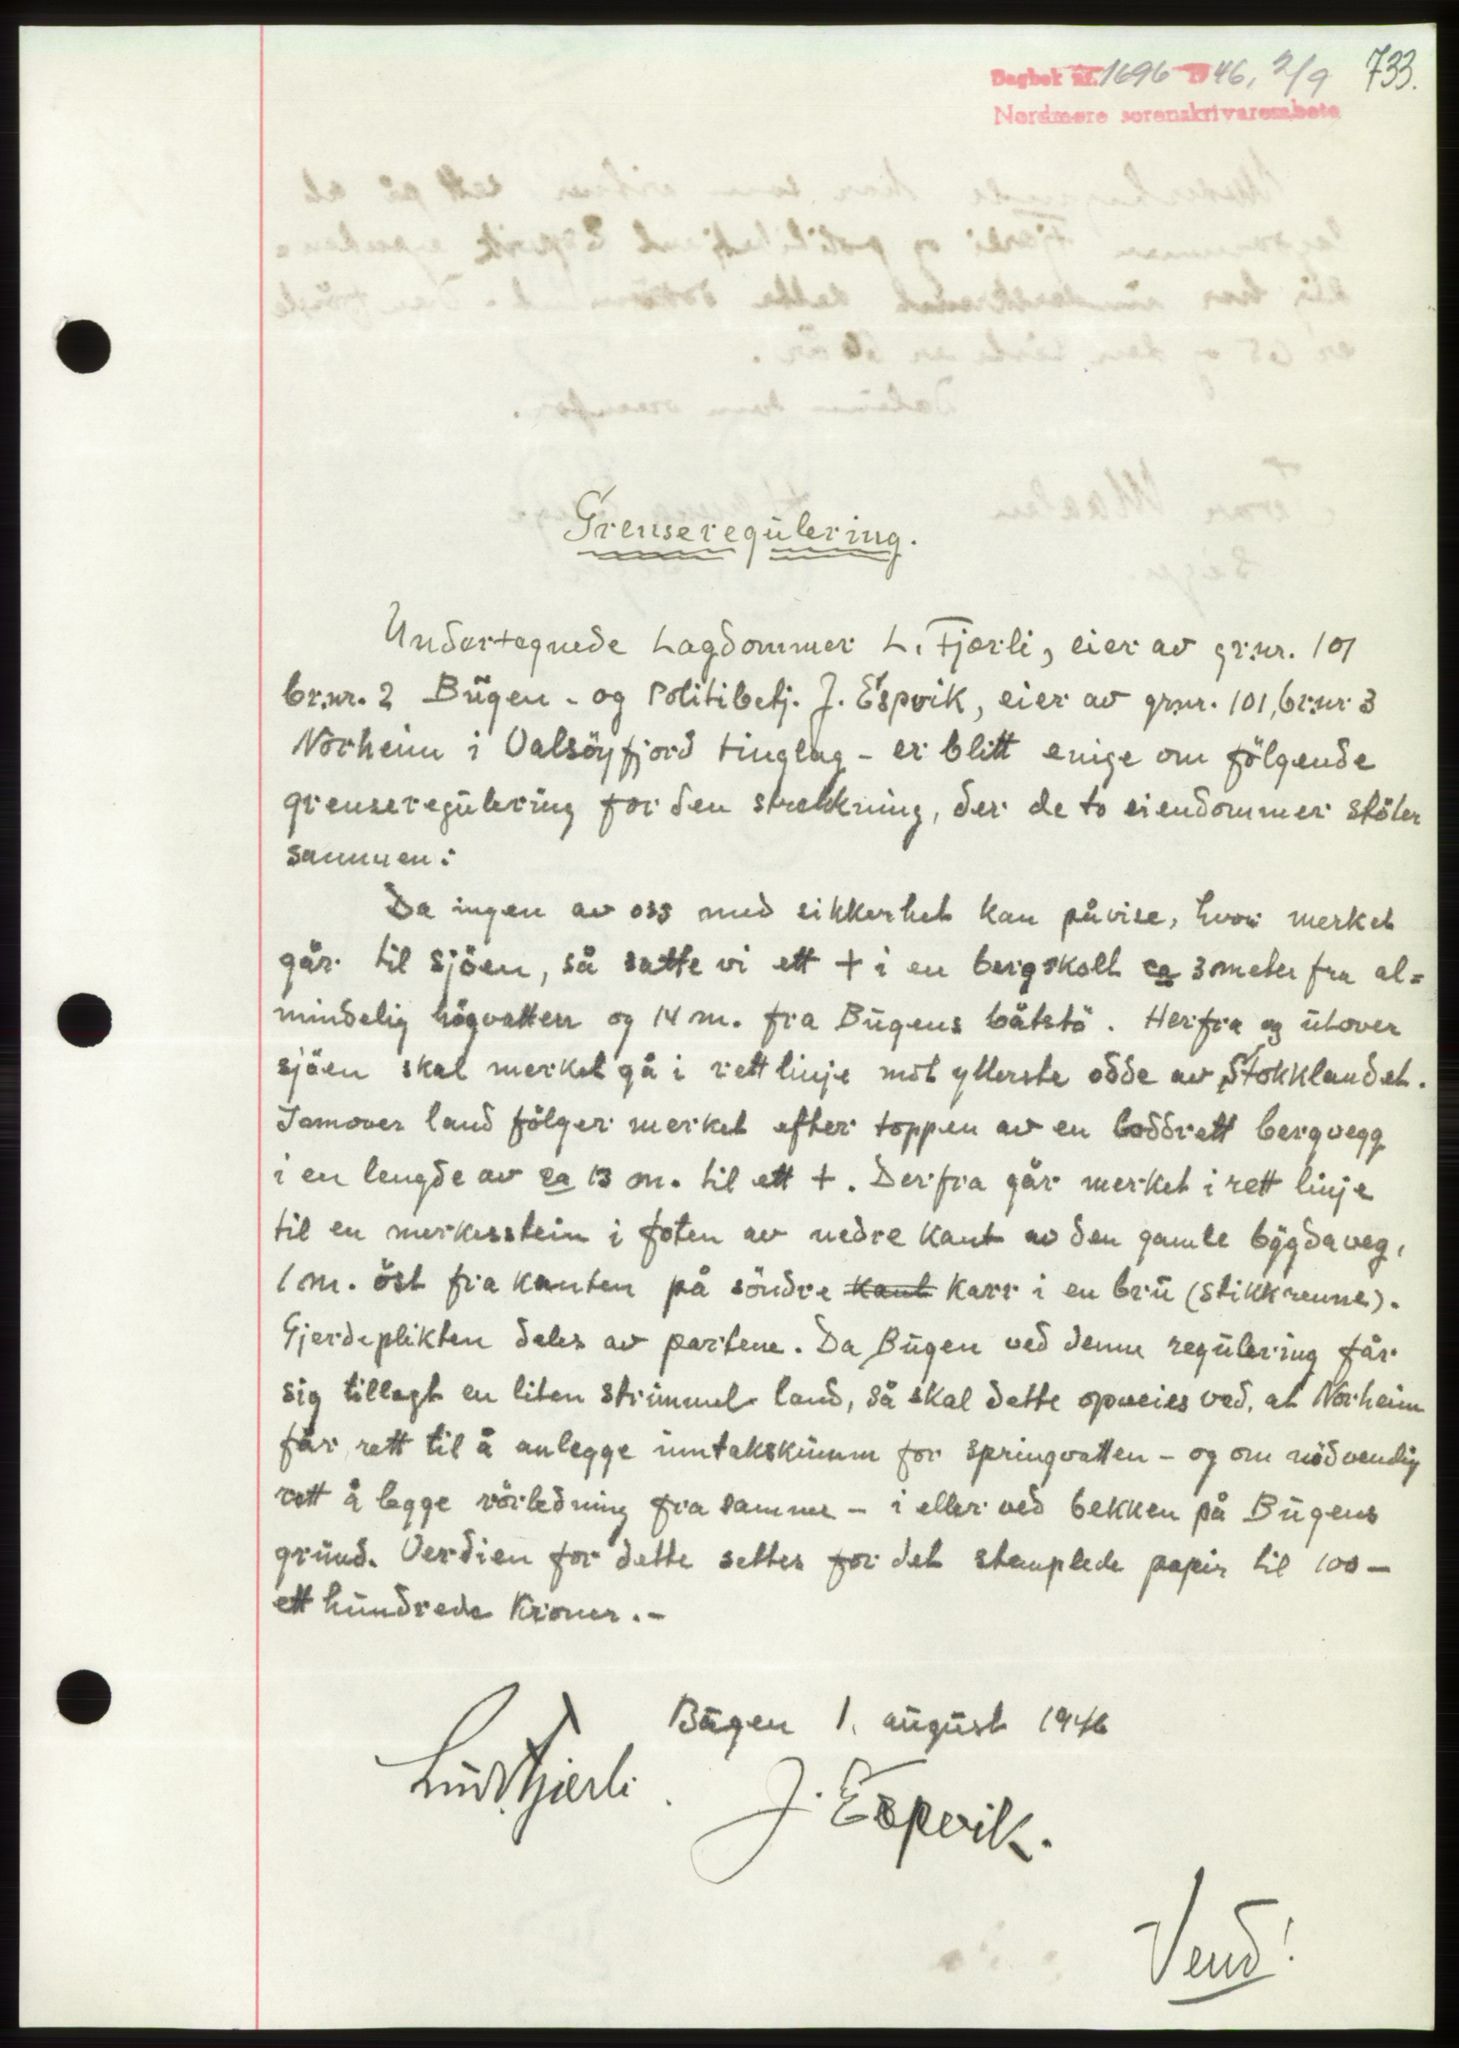 Dagbok nr. 1696 1946, 2/9 733.
Nordmøre sorenskrivarembete
Grenseregulering.
Undertegnede Lagdommer L. Fjærli, eier av gr.nr. 101
br.nr. 2 Bugen - og Politibetj. J. Espvik, eier av gr.nr. 101, br.nr 3
Norheim i Valsöyfjord tinglag - er blitt enige om fölgende
grenseregulering for den strekkning, der de to eiendommer stöter
sammen:
Da ingen av oss med sikkerhet kan påvise, hvor merket
går til sjöen, så satte vi ett + i en bergskolt ca 3 meter fra al=
mindelig högvatten og 14 m. fra Bugens båtstö. Herfra og utover
sjöen skal merket gå i rett linje mot ytterste odde av Stokklandet.
Inover land fölger merket efter toppen av en loddrett bergvegg
i en lengde av ca 13 m. til ett +. Derfra går merket i rett linje
til en merkesstein i foten av nedre kant av den gamle bygdaveg,
1 m. öst fra kanten på söndre kant karr i en bru (stikkrenne).
Gjerdeplikten deles av partene. Da Bugen ved denne regulering får
sig tillagt en liten strimmel land, så skal dette opveies ved, at Norheim
får rett til å anlegge inntakskumm for springvatten - og om nödvendig
rett å legge rörledning fra samme - i eller ved bekken på Bugens
grund. Verdien for dette settes for det stemplede papir til 100 -
ett hundrede kroner. -
Bugen 1. august 1946
Ludv. Fjærli. J. Espvik.
Vend!